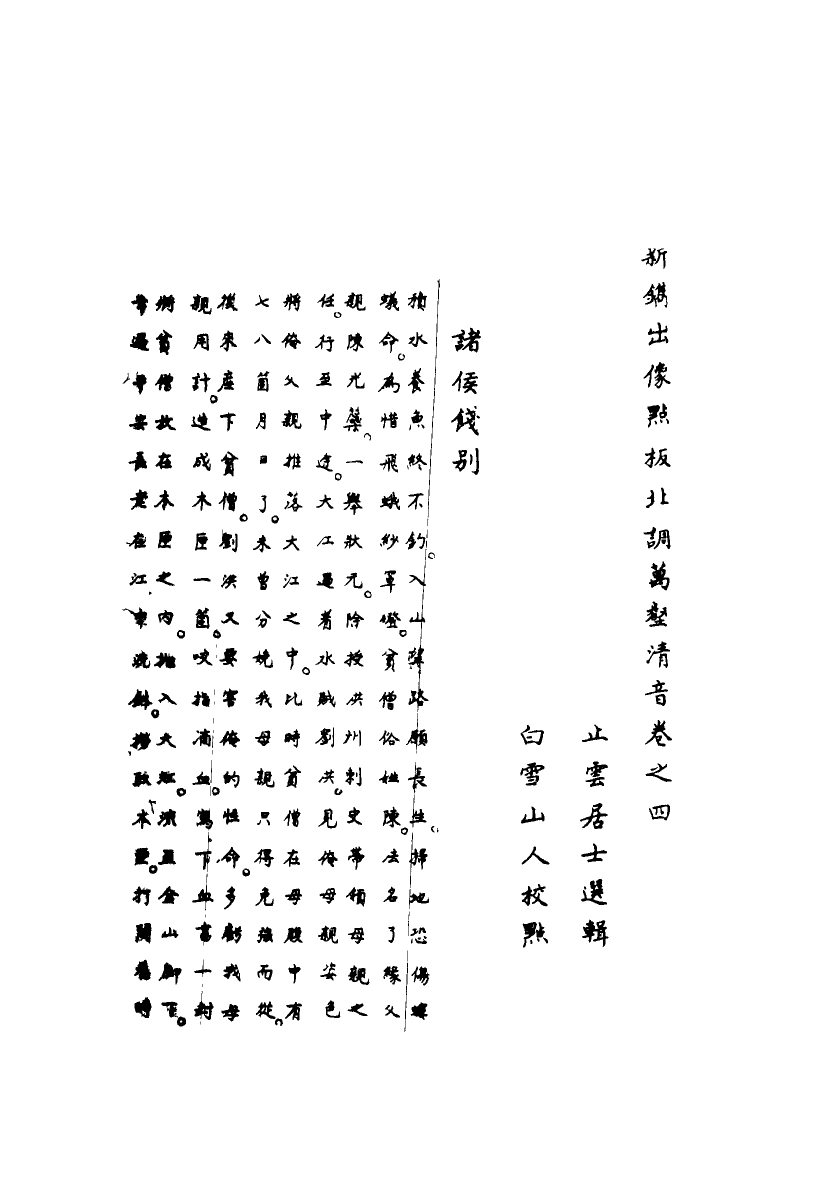 新鐫出像點板北調萬壑清音卷之四
止雲居士選輯
白雪山人校點
諸侯餞別
積水養魚終不釣。入山擇路願長生。掃地恐傷螻
蟻命。為惜飛蛾紗罩燈。貧僧俗姓陳。法名了緣父
親陳光蘂。一舉狀元。除授洪州刺史帶領母親之
任。行至中途。大江遇着水賊劉洪。見俺母親姿色
將俺父親推落大江之中。比時貧僧在母腹中有
七八箇月日了。未曾分娩我母親只得免強而從。
後來產下貧僧。劉洪又要害俺的性命。多虧我母
親用計。造成木匣一箇。咬指滴血。寫下血書一封
將貧僧放在木匣之內。拋入大江。流至金山腳下。
長老在江東洗 撈取木匣。打開看時